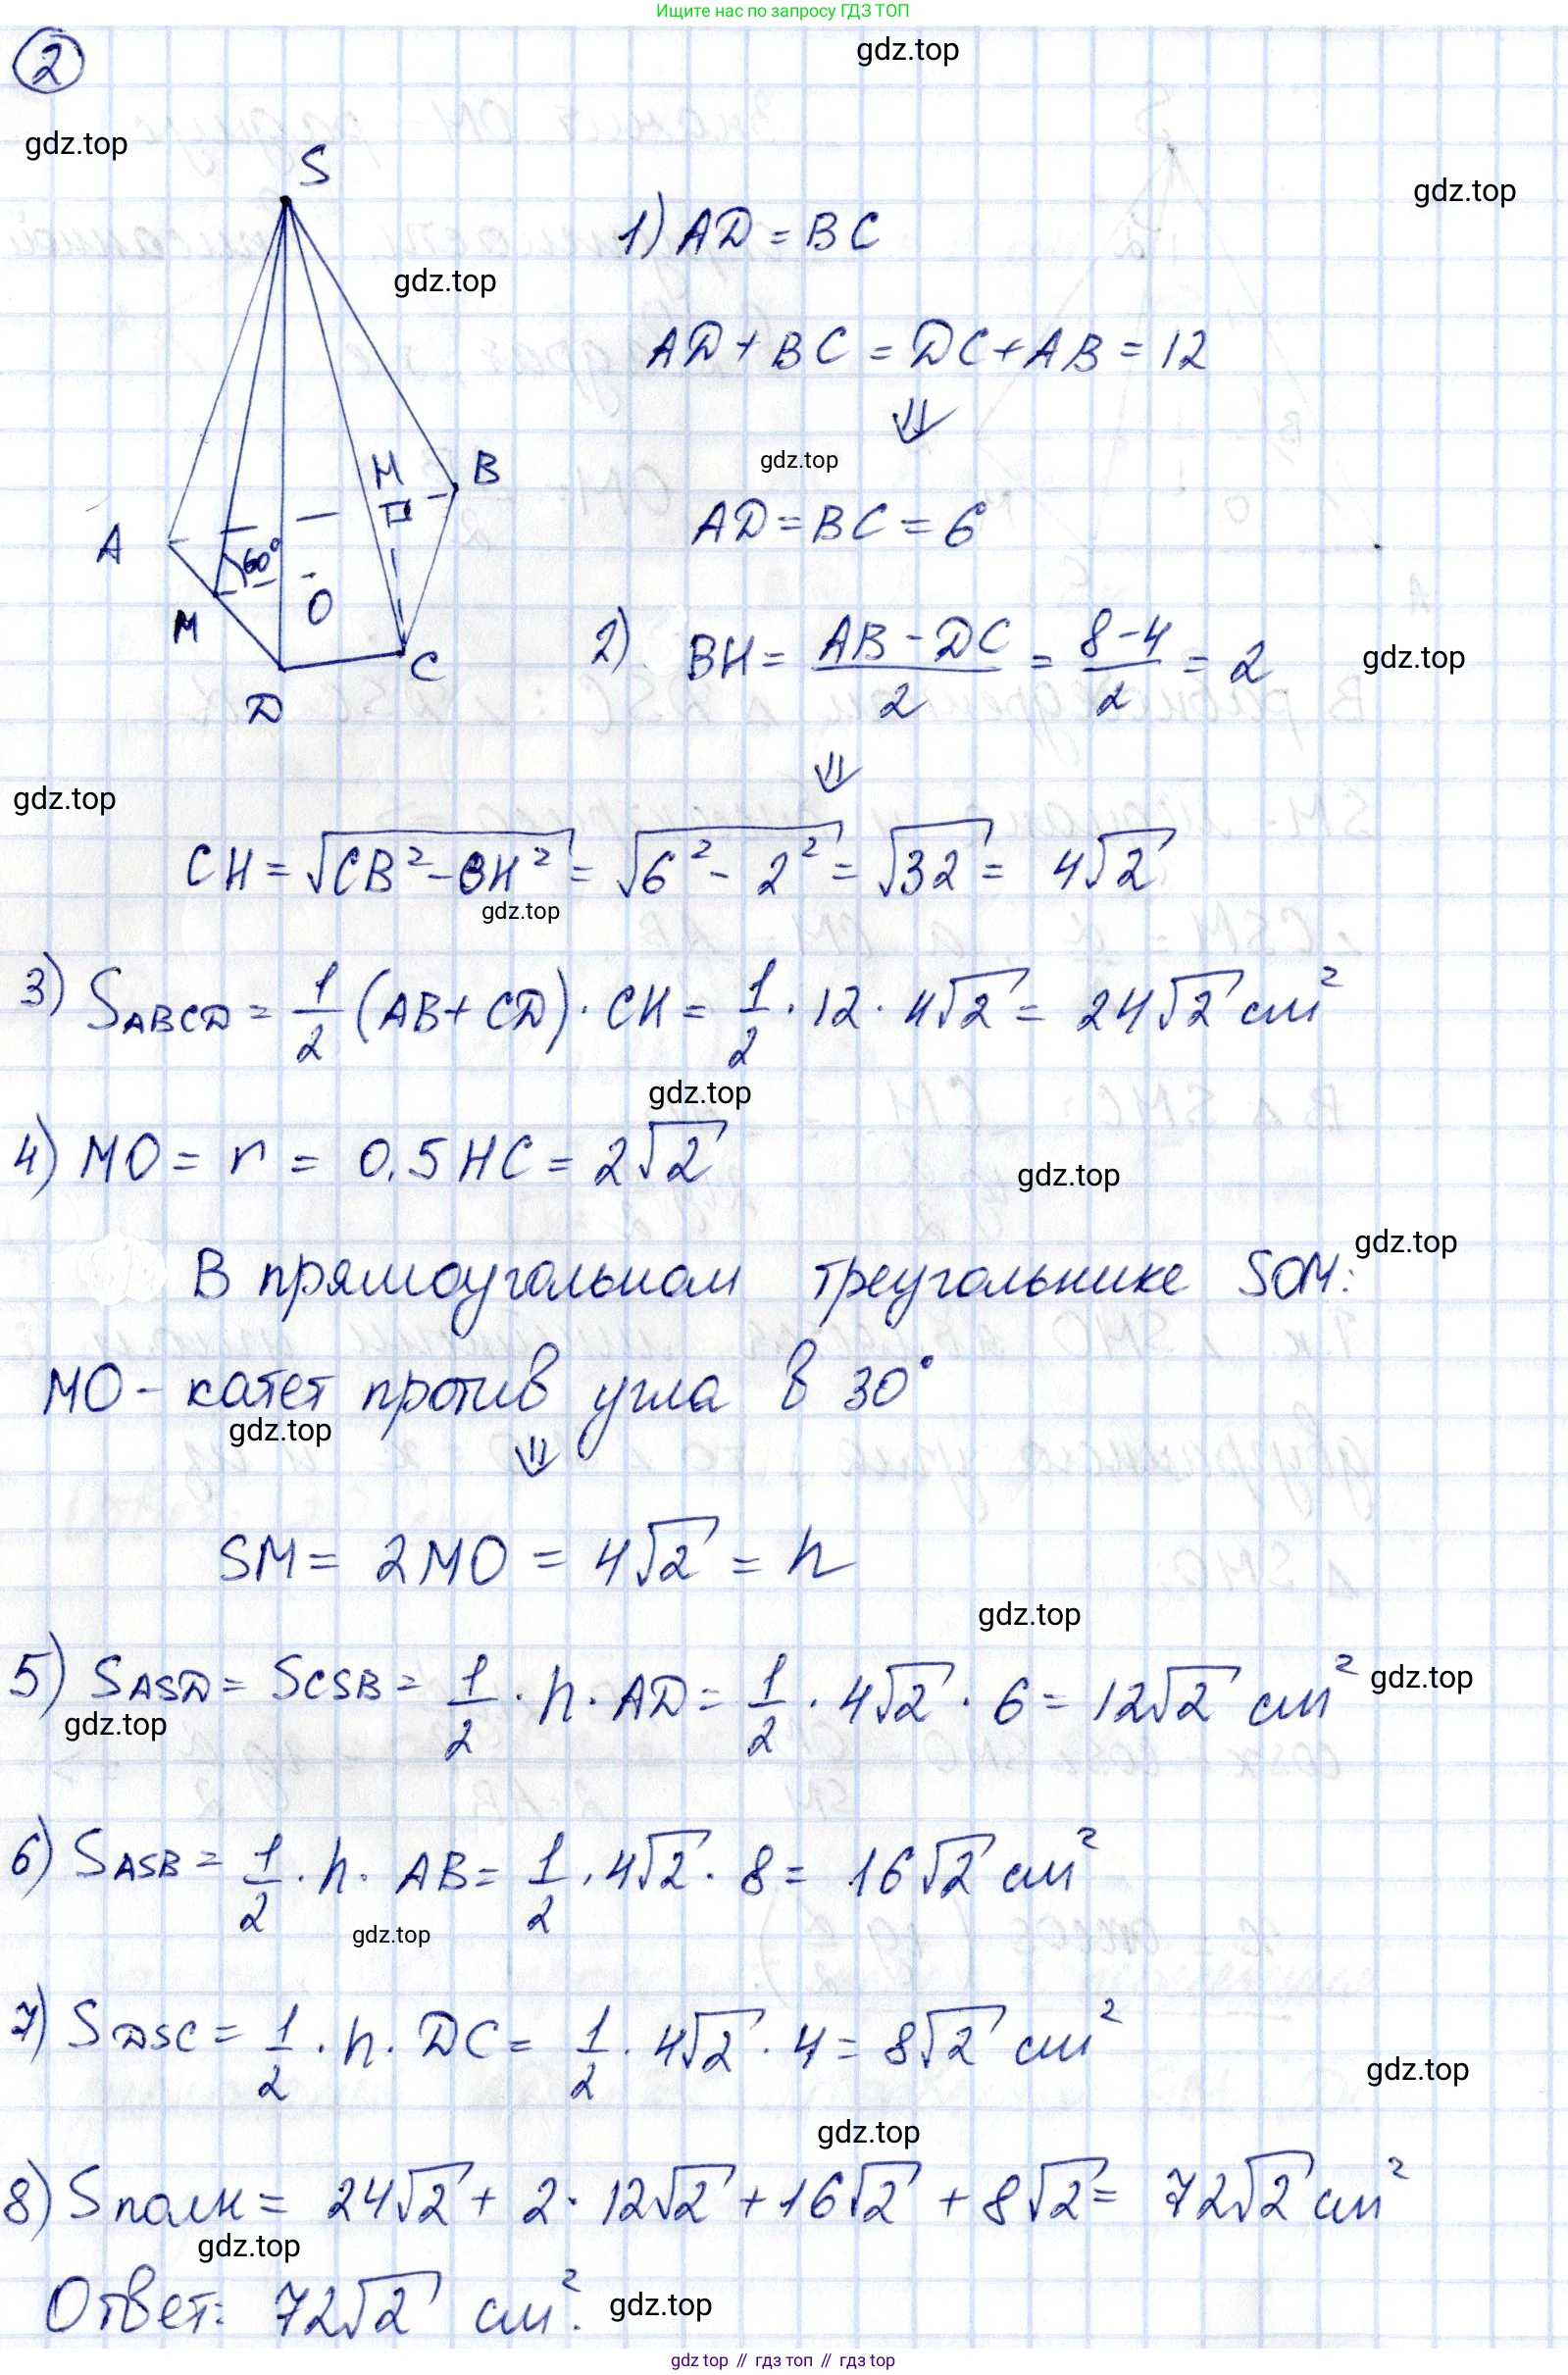 Ищите нас по запросу ГДЗ ТОП
2
gdz.top
gdz.top
S
gdz.top
1) AD = BC
gdz.top
AD + BC = DC + AB = 12
⇓
gdz.top
M B
AD = BC = 6
A 60°
M O
D C
2) BH = (AB - DC)/2 = (8 - 4)/2 = 2
gdz.top
⇓
gdz.top
CH = √(CB² - BH²) = √(6² - 2²) = √32 = 4√2
gdz.top
3) SABCD = 1/2 (AB + CD) · CH = 1/2 · 12 · 4√2 = 24√2 см²
gdz.top
4) MO = r = 0,5 HC = 2√2
gdz.top
gdz.top
В прямоугольном треугольнике SOM:
MO - катет против угла в 30°
gdz.top
⇓
SM = 2MO = 4√2 = h
gdz.top
5) SASD = SCSB = 1/2 · h · AD = 1/2 · 4√2 · 6 = 12√2 см²
gdz.top
gdz.top
6) SASB = 1/2 · h · AB = 1/2 · 4√2 · 8 = 16√2 см²
gdz.top
7) SDSC = 1/2 · h · DC = 1/2 · 4√2 · 4 = 8√2 см²
gdz.top
gdz.top
8) Sполн = 24√2 + 2 · 12√2 + 16√2 + 8√2 = 72√2 см²
gdz.top
Ответ: 72√2 см².
gdz.top
gdz top // гдз топ // гдз top